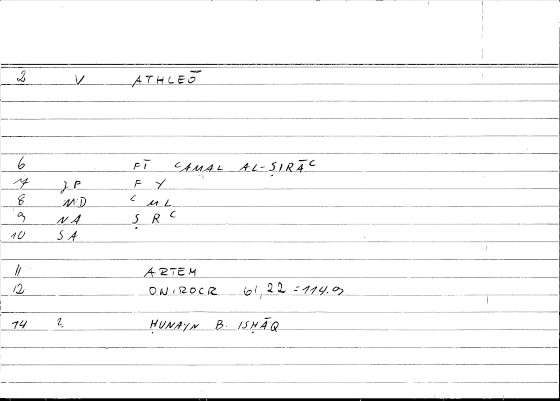 2 V ATHLEŌ
6 FĪ ʿAMAL AL-ṢIRĀʿ
7 JP F Y
8 MD ʿ M L
9 NA Ṣ R ʿ
10 SA
11 ARTEM
12 ONIROCR 61,22 = 114.9
14 2 ḤUNAYN B. ISḤĀQ